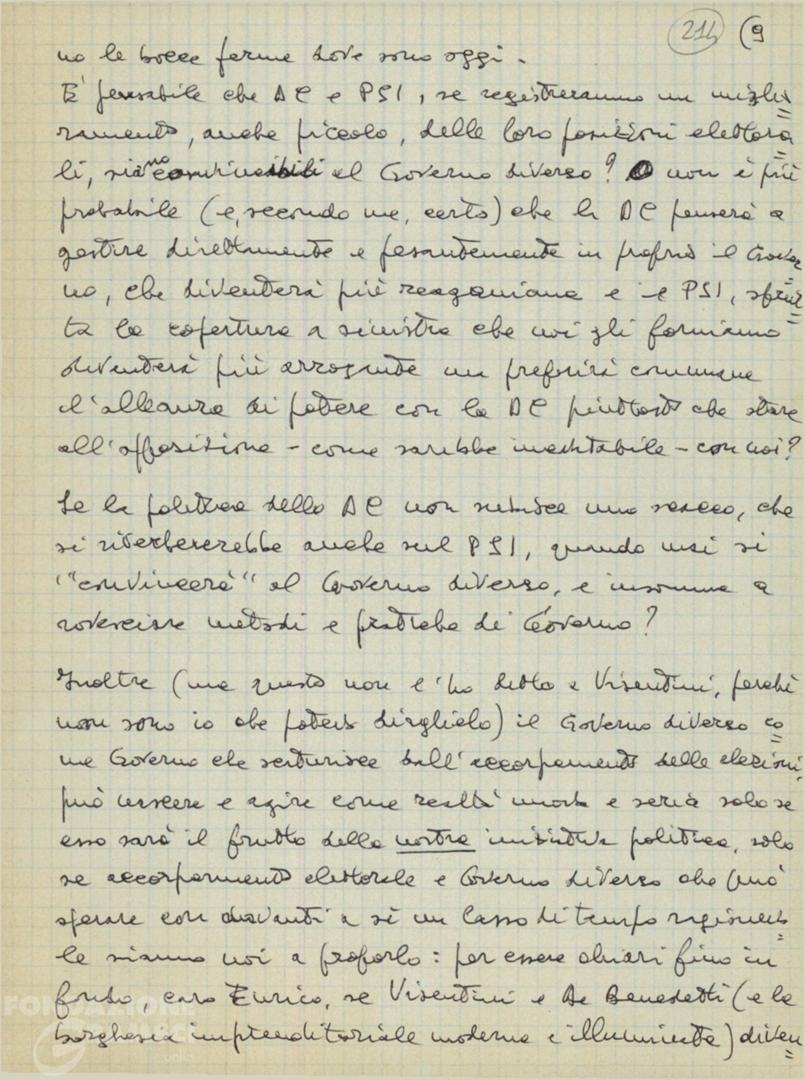 214 (9
no le bocce ferme dove sono oggi.
E' pensabile che DC e PSI, se registreranno un miglio=
ramento, anche piccolo, delle loro posizioni elettora=
li, siano convincibili al Governo diverso? O non è più
probabile (e, secondo me, certo) che la DC penserà a
gestire direttamente e pesantemente in proprio il Gover=
no, che diventerà più reaganiana e il PSI, sfrut=
ta la copertura a sinistra che noi gli forniamo
diventerà più arrogante ma preferirà comunque
l'alleanza di potere con la DC piuttosto che stare
all'opposizione - come sarebbe inevitabile - con noi?
Se la politica della DC non subisce uno scacco, che
si riverbererebbe anche sul PSI, quando mai si
"convincerà" al Governo diverso, e insomma a
rovesciare metodi e pratiche di Governo?
Inoltre (ma questo non l'ho detto a Visentini, perché
non sono io che potevo dirglielo) il Governo diverso co=
me Governo che scaturisce dall'accorpamento delle elezioni,
può nascere e agire come realtà nuova e seria solo se
esso sarà il frutto della nostra iniziativa politica, solo
se accorpamento elettorale e Governo diverso che può
sperare con davanti a sé un lasso di tempo ragionevo=
le siamo noi a proporlo: per essere chiari fino in
fondo, caro Enrico, se Visentini e De Benedetti (e la
borghesia imprenditoriale moderna e illuminata) diven=
FONDAZIONE